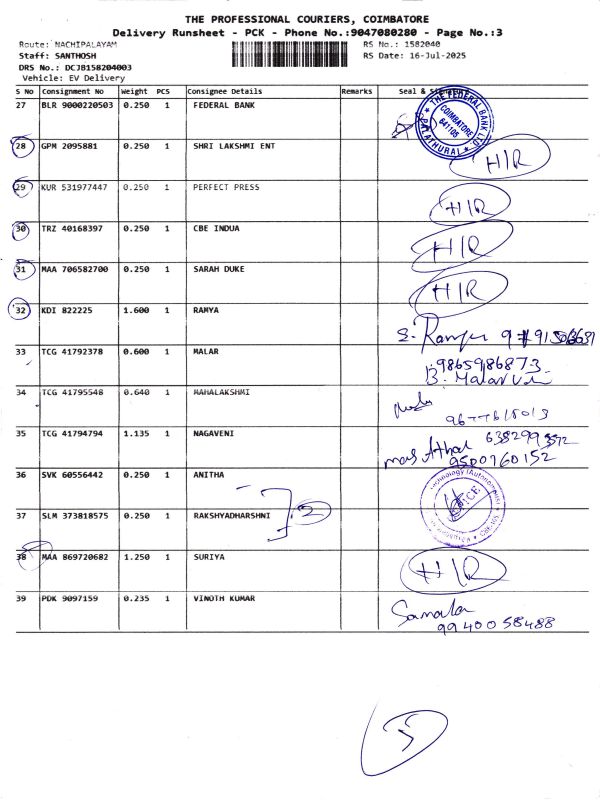 THE PROFESSIONAL COURIERS, COIMBATORE
Delivery Runsheet - PCK - Phone No.:9047080280 - Page No.:3
Route: NACHIPALAYAM RS No.: 1582040
Staff: SANTHOSH RS Date: 16-Jul-2025
DRS No.: DCJB158204003
Vehicle: EV Delivery
S No Consignment No Weight PCS Consignee Details Remarks Seal &
27 BLR 9000220503 0.250 1 FEDERAL BANK
THE FEDERAL BANK LTD. COIMBATORE 641105 PALATHURAI
28 GPM 2095881 0.250 1 SHRI LAKSHMI ENT H/R
29 KUR 531977447 0.250 1 PERFECT PRESS H/R
30 TRZ 40168397 0.250 1 CBE INDUA H/R
31 MAA 706582700 0.250 1 SARAH DUKE H/R
32 KDI 822225 1.600 1 RAMYA
33 TCG 41792378 0.600 1 MALAR 9865986873
34 TCG 41795548 0.640 1 MAHALAKSHMI
35 TCG 41794794 1.135 1 NAGAVENI
9500760152
36 SVK 60556442 0.250 1 ANITHA
37 SLM 373818575 0.250 1 RAKSHYADHARSHNI 2
38 MAA 869720682 1.250 1 SURIYA H/R
39 PDK 9097159 0.235 1 VINOTH KUMAR
9940058488
5